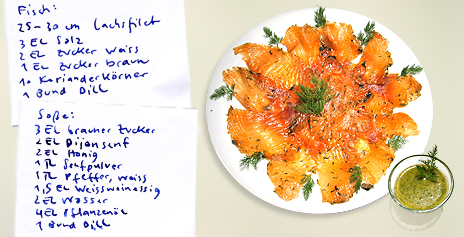 Fisch:
25-30 cm Lachsfilet
3 EL Salz
2 EL Zucker weiss
1 EL Zucker braun
10 Korianderkörner
1 Bund Dill
Soße:
3 EL brauner Zucker
2 EL Dijonsenf
2 EL Honig
1 TL Senfpulver
1 TL Pfeffer, weiss
1,5 EL Weissweinessig
2 EL Wasser
4 EL Pflanzenöl
1 Bund Dill